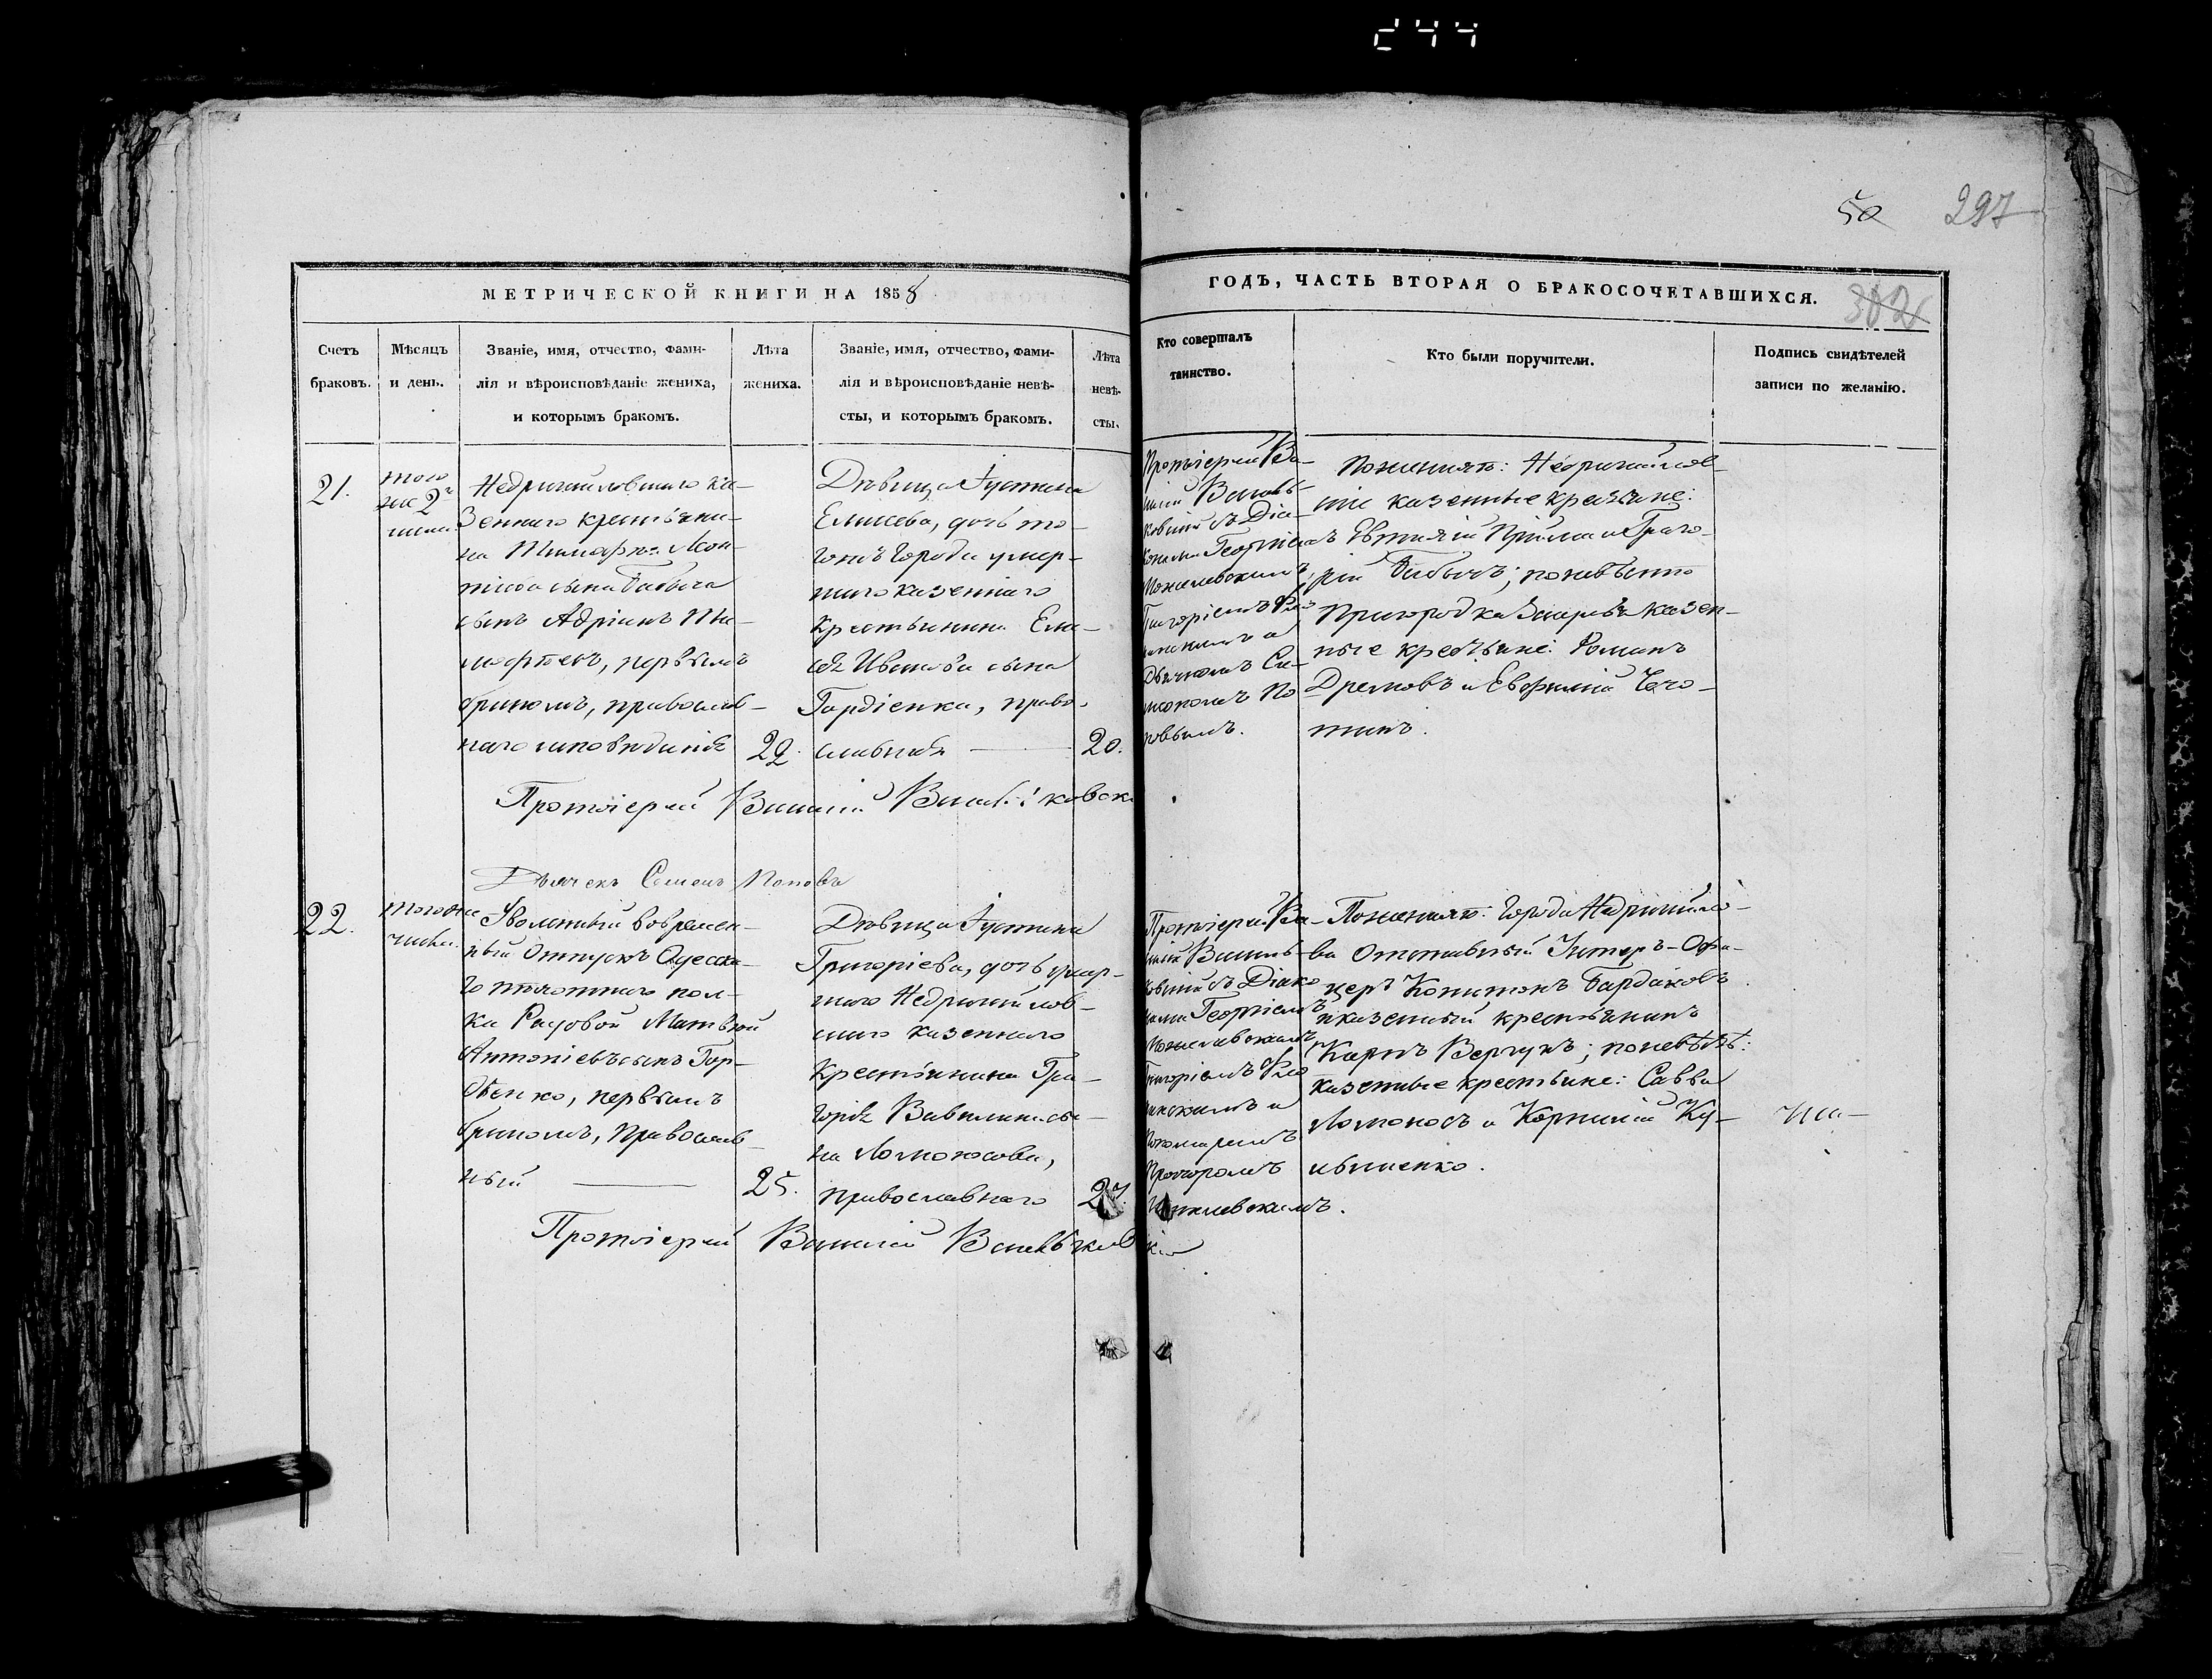 244
50 297
МЕТРИЧЕСКОЙ КНИГИ НА 1858
ГОДЪ, ЧАСТЬ ВТОРАЯ О БРАКОСОЧЕТАВШИХСЯ.
302
Счетъ
браковъ.
Мѣсяцъ
и день.
Званіе, имя, отчество, фами-
лія и вѣроисповѣданіе жениха,
и которымъ бракомъ.
Лѣта
жениха.
Званіе, имя, отчество, фами-
лія и вѣроисповѣданіе невѣ-
сты, и которымъ бракомъ.
Лѣта
невѣ-
сты.
Кто совершалъ
таинство.
Кто были поручители.
Подпись свидѣтелей
записи по желанію.
21.
того
же 2г
числа
Недригайловскаго ка-
зеннаго крестьяни-
на Тимофея Леон-
тіева сына Бабича
сынъ Адріанъ Ти-
мофеевъ, первымъ
бракомъ, православ-
наго исповѣданія
29.
Дѣвица Іустина
Елисеева, дочь то-
гожъ города умер-
шаго казеннаго
крестьянина Ели-
сѣя Иванова сына
Гордіенка, право-
славная
20.
Протоіерей Ва-
силій Василь-
ковскій съ Діа-
кономъ Георгіемъ
Григоріемъ
Дьячкомъ Си-
меономъ По-
повымъ.
По женихѣ: Недригайлов-
скіе казенные крестьяне:
Евтихій Прійма и Григо-
рій Бабичъ; по невѣстѣ
Пригородка казен-
ные крестьяне: Романъ
Дремовъ и Евфимій
Протоіерей Василій Васильковскій
Дьячекъ Симеонъ Поповъ
22.
тогоже
числа.
Уволенный во времен-
ный отпускъ Одесска-
го пѣхотнаго пол-
ка Рядовой Матвѣй
Антоніевъ сынъ Гор-
дѣенко, первымъ
бракомъ, православ-
ный
25.
Дѣвица Іустина
Григоріева, дочь умер-
шаго Недригайлов-
скаго казеннаго
крестьянина Гри-
горія Вавилина сы-
на Ломоносова,
православнаго
27.
Протоіерей Ва-
силій Василь-
ковскій съ Діако-
номъ Георгіемъ
Григоріемъ
Пономаремъ
Прохоромъ
По женихѣ: города Недригайло-
ва Отставной Унтеръ-Офи-
церъ Капитонъ Бардаковъ
и казенный крестьянинъ
Карпъ Вергунъ; по невѣстѣ:
казенные крестьяне: Савва
Ломоносъ и Корнилій
Протоіерей Василій Васильковскій